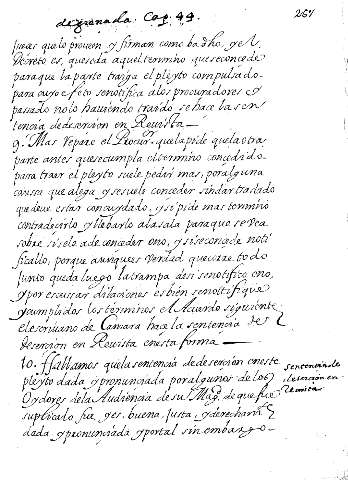 de granada. Cap. 44.
267
juras que lo proveen y firman como ba dho, y el
Decreto es, que se da aquel termino que se concede
para que la parte traiga el pleyto compulsado
para cuyo efeto se notifica a los procuradores y
pasado no lo haviendo traido se hace la sen
tencia de deserçion en Revista
9. Mas repare el Procur. que la pide que la otra
parte antes que se cumpla el termino concedido
para traer el pleyto suele pedir mas, por alguna
causa que alega y se suele conceder sin dar traslado
que deve estar con cuydado, y si pide mas termino
contradecirlo, y llebarlo a la sala para que se vea
sobre si se lo a de conceder o no, y si se concede noti
ficallo, porque aunque es verdad que corre todo
junto queda luego la trampa de si se notifico, o no,
y por escusar dilaciones es bien se notifique
y cumplidos los terminos el Acuerdo siguiente
el escrivano de Camara hace la sentencia de
deserçion en Revista en esta forma
10. Hallamos que la sentencia de deserçion en este
pleyto dada y pronunciada por algunos de los
Oydores de la Audiencia de su Magd. de que fue
suplicado fue y es, buena, Justa, y derechamte
dada y pronunçiada y por tal sin embargo
sentencia de
deserçion en
Revista